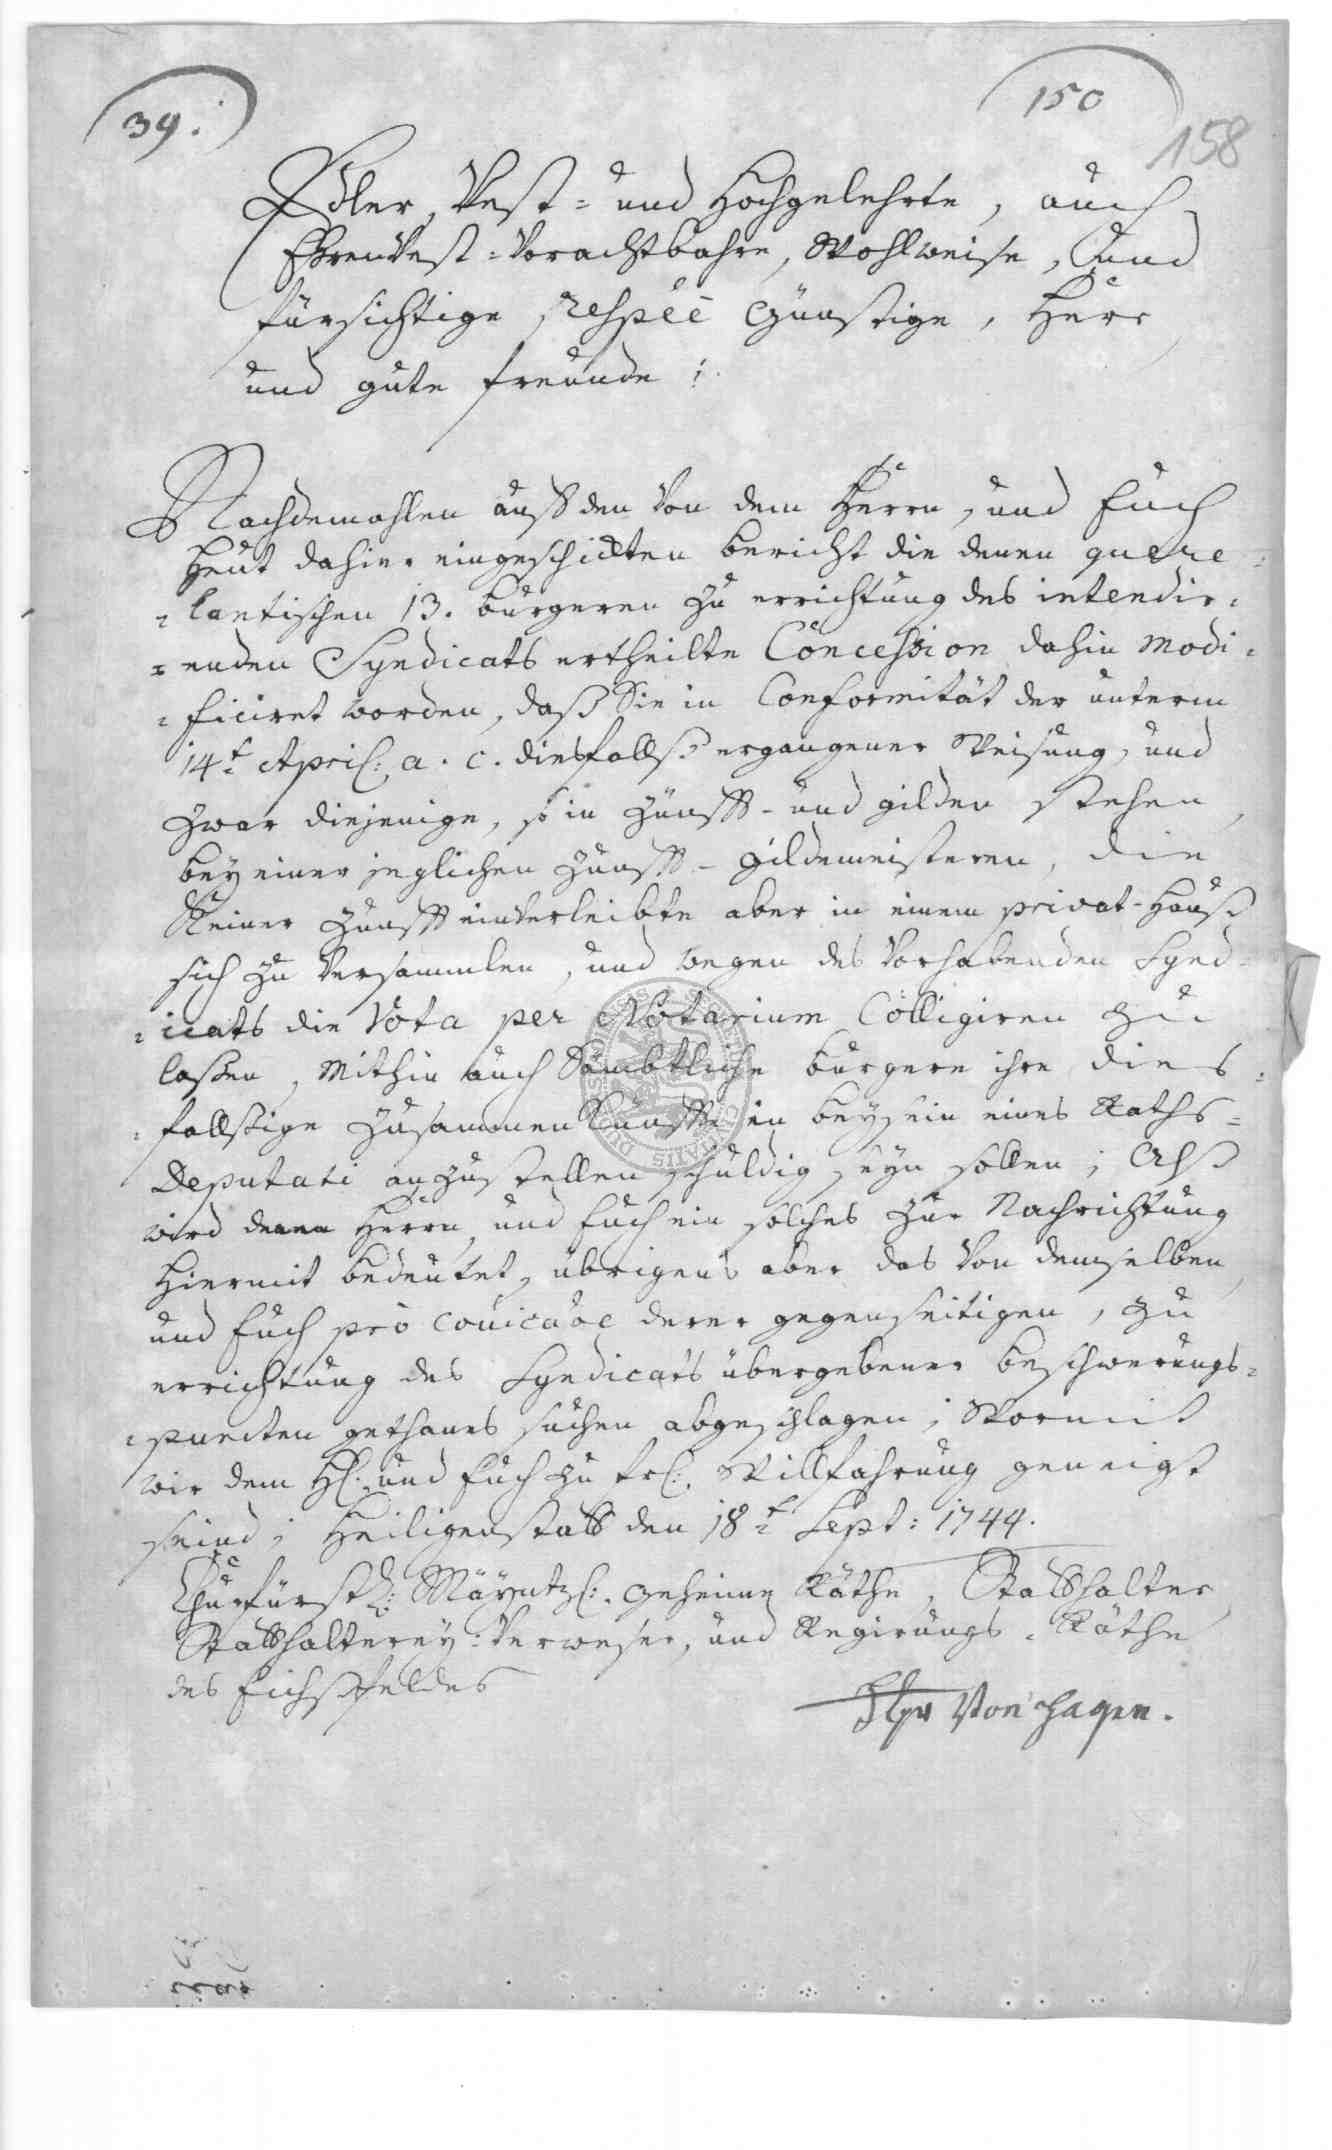 39.
150
158
Edler, Vest- und Hochgelehrte, auch
EhrenVest-Vorachtbahre, Wohlweise, und
fürsichtige respće Günstige, Herr
und gute freunde !
Nachdemahlen auß den Von dem Herrn, und Euch
Heut dahier eingeschickten bericht die denen quere-
-lantischen 13. burgeren zu errichtung des intendir-
-enden Syndicats ertheilte Concession dahin modi-
-ficiret worden, daß Sie in Conformität der unterm
14t April: a. c. diesfallß ergangener Weisung, und
zwar diejenige, so in Zunfft- und gilden stehen,
bey einer jeglichen Zunfft-gildemeisteren, die
Keiner Zunfft einverleibte aber in einem privat-Hauß
sich zu Versammlen, und wegen des Vorhabenden Synd-
-icats die Vota per Notarium Colligiren zu
laßen, Mithin auch Sämbtliche burgere ihre dies-
-fallßige Zusammenkünffte in beysein eines Raths-
Deputati anzustellen schuldig seyn sollen; Alß
wird denen Herrn, und Euch ein solches zur Nachrichtung
Hiermit bedeutet, übrigens aber das Von demselben,
und Euch pro derer gegenseitigen, zu
errichtung des Syndicats übergebener beschwerungs-
-puncten gethanes suchen abgeschlagen; Wormit
wir dem H: und Euch zu frl: Willfahrung geneigt
seind; Heiligenstatt den 18t Sept: 1744.
Churfürstl: Mäyntzl: geheime Räthe, Statthalter,
Statthalterey-Verweser, und Regirungs-Räthe
des Eichßfeldes
Von Hagen.